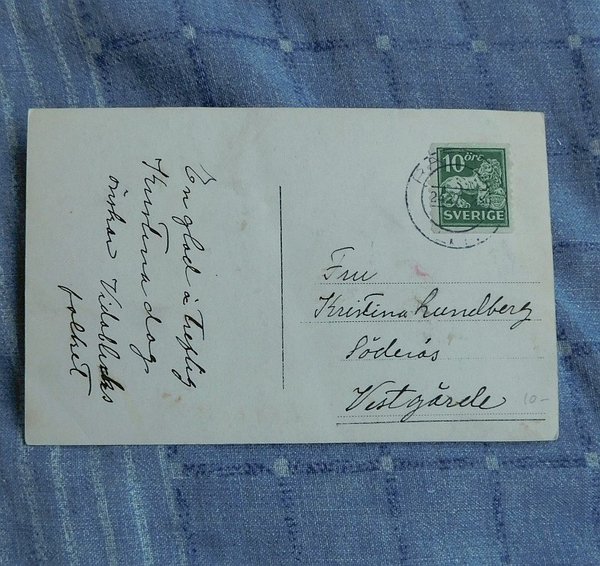 En glad & treflig
Kristinadag
önskar Vidablicks
folket
10 ÖRE
SVERIGE
Fru
Kristina Lundberg
Söderås
Vestgärde
10-